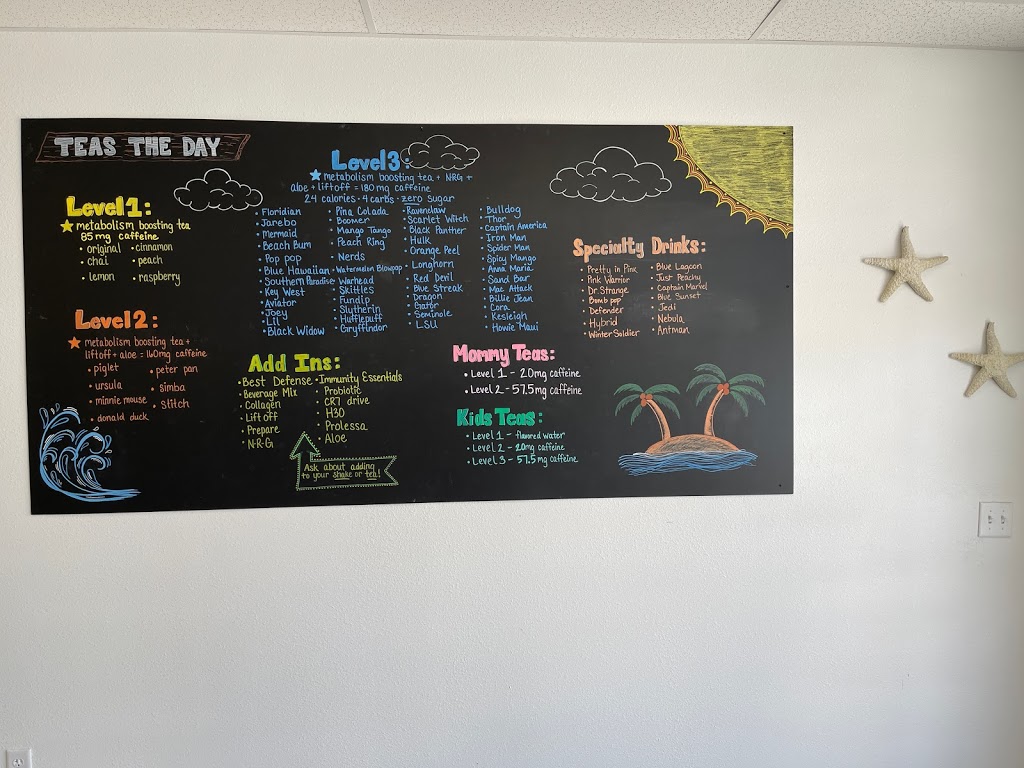 TEAS THE DAY
Level 1:
metabolism boosting tea
85 mg caffeine
• original
• chai
• lemon
• cinnamon
• peach
• raspberry
Level 2:
metabolism boosting tea +
liftoff + aloe = 160mg caffeine
• piglet
• ursula
• minnie mouse
• donald duck
• peter pan
• simba
• stitch
Level 3:
metabolism boosting tea + NRG +
aloe + liftoff = 180 mg caffeine
24 calories • 4 carbs • zero sugar
• Floridian
• Jarebo
• Mermaid
• Beach Bum
• Pop pop
• Blue Hawaiian
• Southern Paradise
• Key West
• Aviator
• Joey
• Lil
• Black Widow
• Pina Colada
• Boomer
• Mango Tango
• Peach Ring
• Nerds
• Watermelon Blowpop
• Warhead
• Skittles
• Fundip
• Slytherin
• Hufflepuff
• Gryffindor
• Ravenclaw
• Scarlet Witch
• Black Panther
• Hulk
• Orange Peel
• Longhorn
• Red Devil
• Blue Streak
• Dragon
• Gator
• Seminole
• LSU
• Bulldog
• Thor
• Captain America
• Iron Man
• Spider Man
• Spicy Mango
• Anna Maria
• Sand Bar
• Mac Attack
• Billie Jean
• Cora
• Kesleigh
• Howie Maui
Add Ins:
• Best Defense
• Beverage Mix
• Collagen
• Lift off
• Prepare
• N-R-G
• Immunity Essentials
• Probiotic
• CR7 drive
• H30
• Prolessa
• Aloe
Ask about adding
to your shake or tea!
Mommy Teas:
• Level 1 - 20mg caffeine
• Level 2 - 57.5mg caffeine
Kids Teas:
• Level 1 - flavored water
• Level 2 - 20mg caffeine
• Level 3 - 57.5mg caffeine
Specialty Drinks:
• Pretty in Pink
• Pink Warrior
• Dr. Strange
• Bomb pop
• Defender
• Hybrid
• Winter Soldier
• Blue Lagoon
• Just Peachy
• Captain Marvel
• Blue Sunset
• Jedi
• Nebula
• Antman